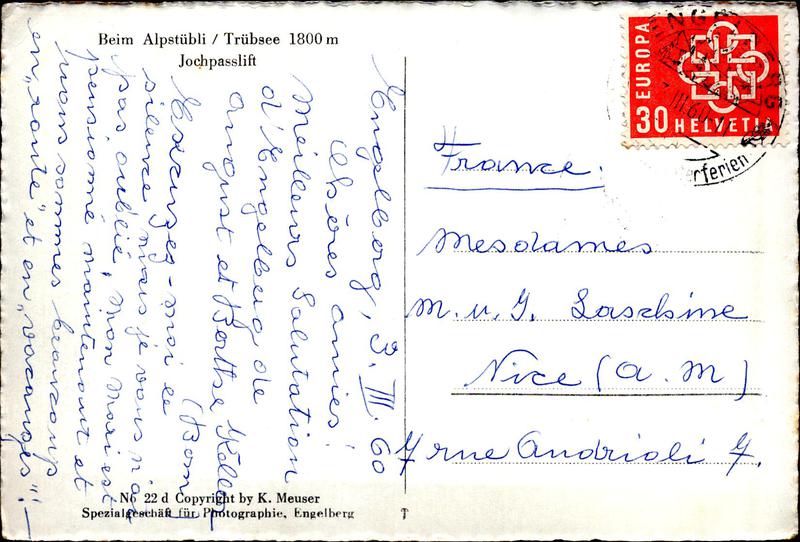 Beim Alpstübli / Trübsee 1800 m
Jochpasslift
Engelberg, 3. III. 60
Chères amies!
Meilleurs Salutation
d'Engelberg de
August et Berthe Keller
(Bom)
Excusez-moi ce
silence, mais je vous n'ai
pas oublié, mon Mari est
pensionné maintenant et
nous sommes beaucoup
en "route" et en "vacances"! —
No 22 d Copyright by K. Meuser
Spezialgeschäft für Photographie, Engelberg
EUROPA
30 HELVETIA
ENGELBERG
III.60
erferien
France.
Mesdames
M. u. J. Laschine
Nice (A. M)
7 rue Andrioli 7.